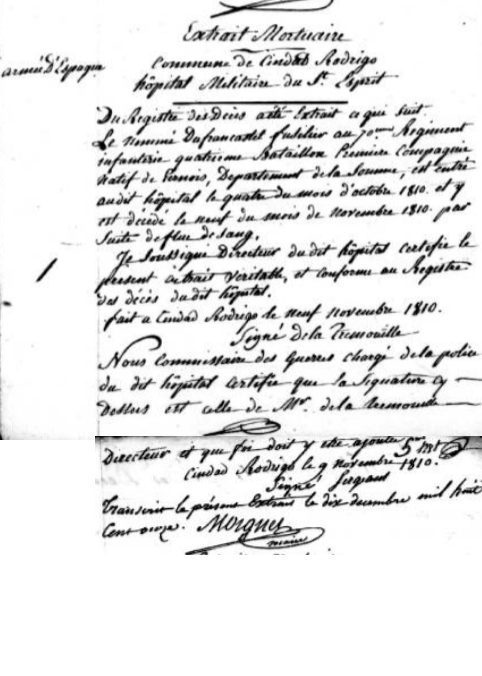 Extrait Mortuaire
armée D'Espagne
Commune de Ciudad Rodrigo
hôpital Militaire du St. Esprit
Du Registre des Décès a été Extrait ce qui suit
Le nommé Dufrancastel fusilier au 70eme Regiment
infanterie quatrieme Bataillon Premiere Compagnie
natif de Vernois, Departement de la Somme, est entré
audit hôpital le quatre du mois d'octobre 1810. et y
est décédé le neuf du mois de novembre 1810. par
Suite de flux de sang.
Je Soussigné Directeur du dit hôpital certifie le
present Extrait véritable, et conforme au Registre
des décès du dit hôpital.
fait a Ciudad Rodrigo le neuf novembre 1810.
Signé De la Tremouille
Nous Commissaire des Guerres chargé de la police
du dit hôpital Certifie que la Signature cy
Dessus est celle de Mr. de la Tremouille
Directeur et que foi doit y etre ajoutée
Ciudad Rodrigo le 9 novembre 1810.
Signé
Transcrit le présent Extrait le dix decembre mil huit
Cent onze.
maire